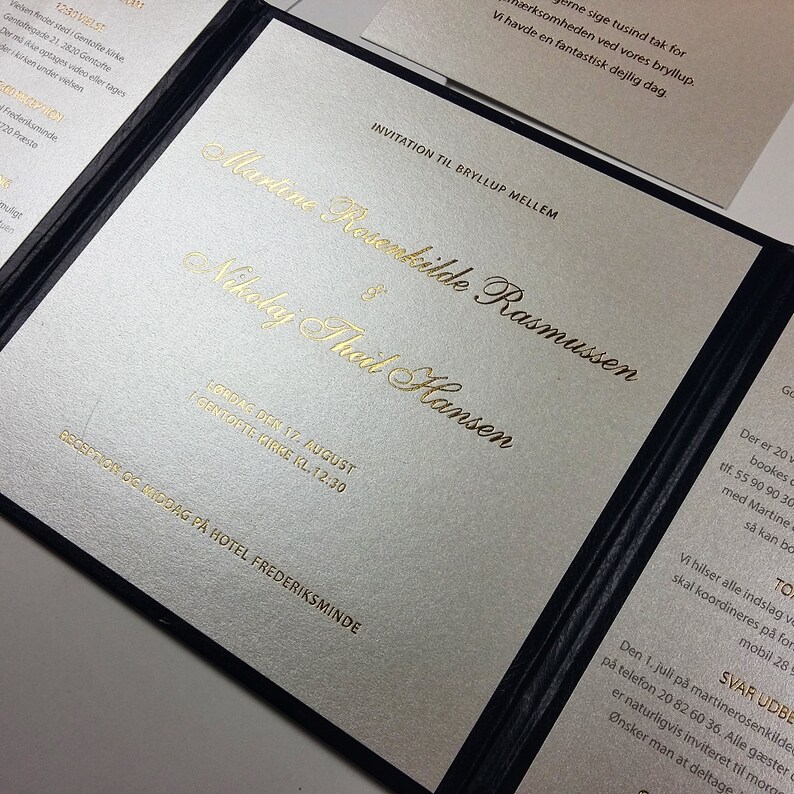 12:30 VIELSE
Vielsen finder sted i Gentofte Kirke.
Gentoftegade 21, 2820 Gentofte
Der må ikke optages video eller tages
i kirken under vielsen
RECEPTION
Frederiksminde
Præstø
gerne sige tusind tak for
ved vores bryllup.
Vi havde en fantastisk dejlig dag.
INVITATION TIL BRYLLUP MELLEM
Martine Rosenkilde Rasmussen
&
Nikolaj Theil Hansen
LØRDAG DEN 17. AUGUST
I GENTOFTE KIRKE KL.12.30
RECEPTION OG MIDDAG PÅ HOTEL FREDERIKSMINDE
Der er 20
bookes
tlf. 55 90 90
med Martine
så kan
Vi hilser alle indslag
skal koordineres på
mobil 28
SVAR
Den 1. juli på
på telefon 20 82 60 36. Alle gæster
er naturligvis inviteret til
Ønsker man at deltage